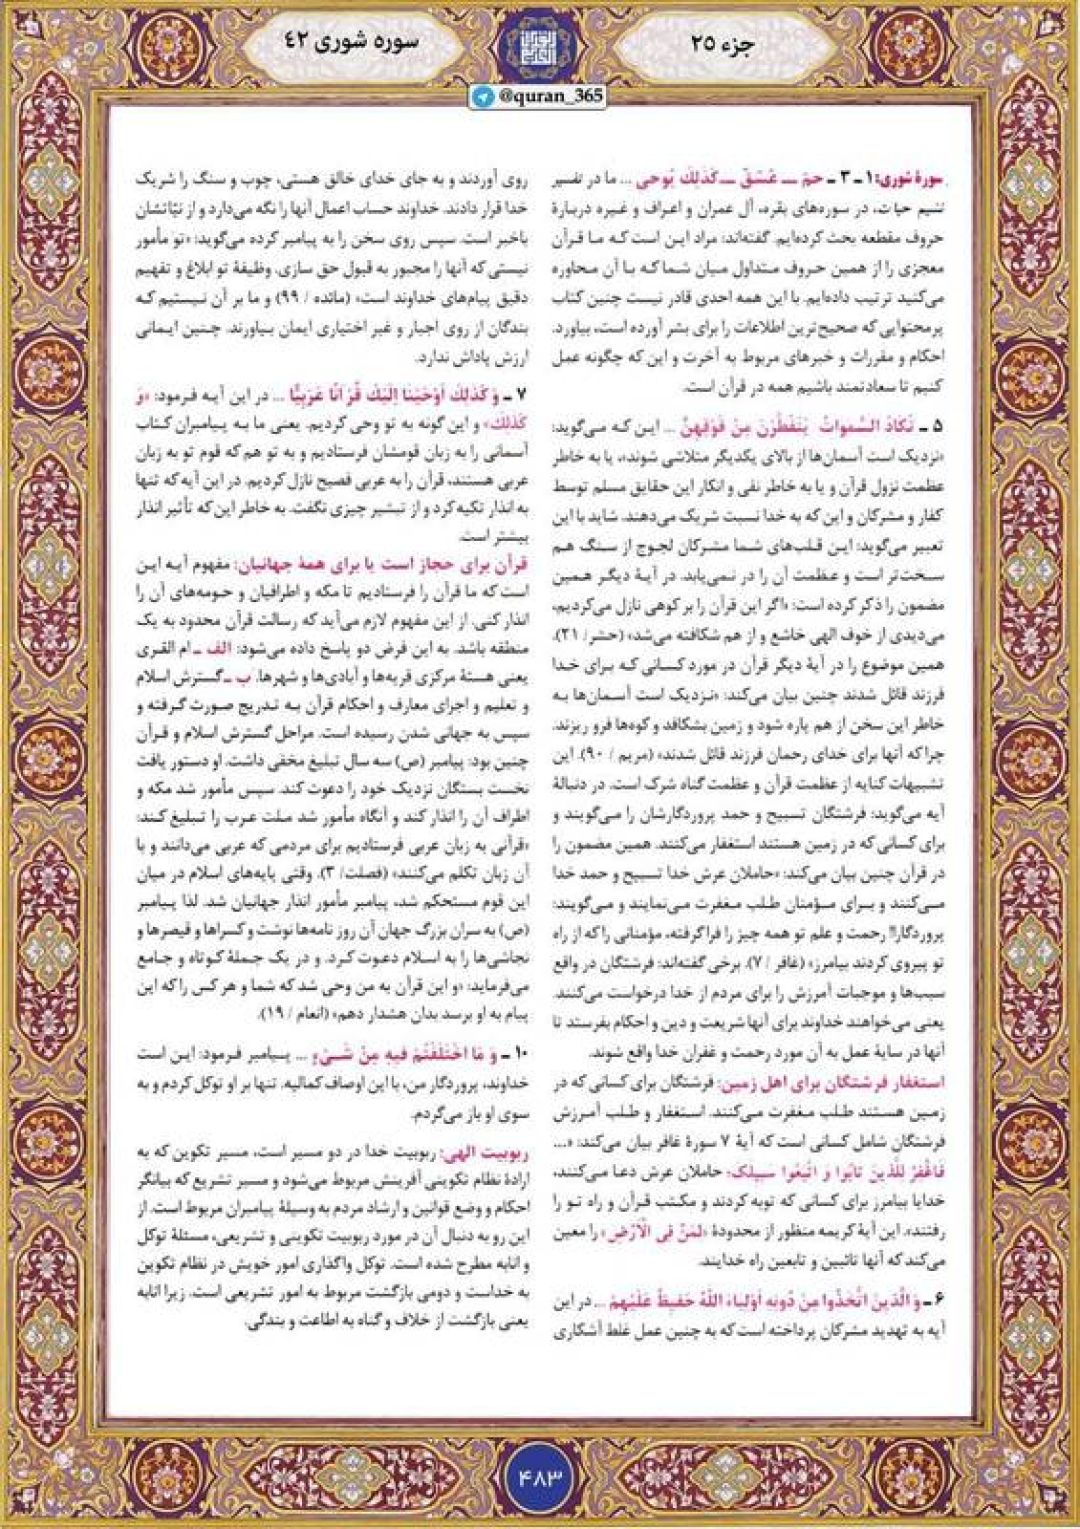 جزء ۲۵
سوره شوری ۴۲
@quran_365
سورهٔ شوری: ۱ـ۳ـ حمٓ ــ عٓسٓقٓ ــ کَذلِكَ یُوحی ... ما در تفسیر
نسیم حیات، در سوره‌های بقره، آل عمران و اعراف و غیره دربارهٔ
حروف مقطعه بحث کرده‌ایم. گفته‌اند: مراد این است که ما قرآن
معجزی را از همین حروف متداول میان شما که با آن محاوره
می‌کنید ترتیب داده‌ایم. با این همه احدی قادر نیست چنین کتاب
پرمحتوایی که صحیح‌ترین اطلاعات را برای بشر آورده است، بیاورد.
احکام و مقررات و خبرهای مربوط به آخرت و این که چگونه عمل
کنیم تا سعادتمند باشیم همه در قرآن است.
۵ ـ تَکادُ السَّمواتُ یَتَفَطَّرْنَ مِنْ فَوْقِهِنَّ ... این که می‌گوید:
«نزدیک است آسمان‌ها از بالای یکدیگر متلاشی شوند»، یا به خاطر
عظمت نزول قرآن و یا به خاطر نفی و انکار این حقایق مسلم توسط
کفار و مشرکان و این که به خدا نسبت شریک می‌دهند. شاید با این
تعبیر می‌گوید: این قلب‌های شما مشرکان لجوج از سنگ هم
سخت‌تر است و عظمت آن را در نمی‌یابد. در آیهٔ دیگر همین
مضمون را ذکر کرده است: «اگر این قرآن را بر کوهی نازل می‌کردیم،
می‌دیدی از خوف الهی خاشع و از هم شکافته می‌شد» (حشر/ ۲۱).
همین موضوع را در آیهٔ دیگر قرآن در مورد کسانی که برای خدا
فرزند قائل شدند چنین بیان می‌کند: «نزدیک است آسمان‌ها به
خاطر این سخن از هم پاره شود و زمین بشکافد و کوه‌ها فرو ریزند.
چرا که آنها برای خدای رحمان فرزند قائل شدند» (مریم / ۹۰). این
تشبیهات کنایه از عظمت قرآن و عظمت گناه شرک است. در دنبالهٔ
آیه می‌گوید: فرشتگان تسبیح و حمد پروردگارشان را می‌گویند و
برای کسانی که در زمین هستند استغفار می‌کنند. همین مضمون را
در قرآن چنین بیان می‌کند: «حاملان عرش خدا تسبیح و حمد خدا
می‌کنند و برای مؤمنان طلب مغفرت می‌نمایند و می‌گویند:
پروردگارا! رحمت و علم تو همه چیز را فراگرفته، مؤمنانی را که از راه
تو پیروی کردند بیامرز» (غافر / ۷). برخی گفته‌اند: فرشتگان در واقع
سبب‌ها و موجبات آمرزش را برای مردم از خدا درخواست می‌کنند.
یعنی می‌خواهند خداوند برای آنها شریعت و دین و احکام بفرستد تا
آنها در سایهٔ عمل به آن مورد رحمت و غفران خدا واقع شوند.
استغفار فرشتگان برای اهل زمین: فرشتگان برای کسانی که در
زمین هستند طلب مغفرت می‌کنند. استغفار و طلب آمرزش
فرشتگان شامل کسانی است که آیهٔ ۷ سورهٔ غافر بیان می‌کند: «...
فَاغْفِرْ لِلَّذِینَ تابُوا وَ اتَّبَعُوا سَبِیلَك: حاملان عرش دعا می‌کنند،
خدایا بیامرز برای کسانی که توبه کردند و مکتب قرآن و راه تو را
رفتند». این آیهٔ کریمه منظور از محدودهٔ «لِمَنْ فِی الْاَرْضِ» را معین
می‌کند که آنها تائبین و تابعین راه خدایند.
۶ ـ وَ الَّذینَ اتَّخَذُوا مِنْ دُونِه اَوْلِیاءَ اللّٰهُ حَفیظٌ عَلَیْهِمْ ... در این
آیه به تهدید مشرکان پرداخته است که به چنین عمل غلط آشکاری
روی آوردند و به جای خدای خالق هستی، چوب و سنگ را شریک
خدا قرار دادند. خداوند حساب اعمال آنها را نگه می‌دارد و از نیّاتشان
باخبر است. سپس روی سخن را به پیامبر کرده می‌گوید: «تو مأمور
نیستی که آنها را مجبور به قبول حق سازی. وظیفهٔ تو ابلاغ و تفهیم
دقیق پیام‌های خداوند است» (مائده / ۹۹) و ما بر آن نیستیم که
بندگان از روی اجبار و غیر اختیاری ایمان بیاورند. چنین ایمانی
ارزش پاداش ندارد.
۷ ـ وَ کَذلِكَ اَوْحَیْنا اِلَیْكَ قُرْانًا عَرَبِیًّا ... در این آیه فرمود: «وَ
کَذلِكَ» و این گونه به تو وحی کردیم. یعنی ما به پیامبران کتاب
آسمانی را به زبان قومشان فرستادیم و به تو هم که قوم تو به زبان
عربی هستند، قرآن را به عربی فصیح نازل کردیم. در این آیه که تنها
به انذار تکیه کرد و از تبشیر چیزی نگفت. به خاطر این که تأثیر انذار
بیشتر است.
قرآن برای حجاز است یا برای همهٔ جهانیان: مفهوم آیه این
است که ما قرآن را فرستادیم تا مکه و اطرافیان و حومه‌های آن را
انذار کنی. از این مفهوم لازم می‌آید که رسالت قرآن محدود به یک
منطقه باشد. به این فرض دو پاسخ داده می‌شود: الف ـ ام القری
یعنی هستهٔ مرکزی قریه‌ها و آبادی‌ها و شهرها. ب ـ گسترش اسلام
و تعلیم و اجرای معارف و احکام قرآن به تدریج صورت گرفته و
سپس به جهانی شدن رسیده است. مراحل گسترش اسلام و قرآن
چنین بود: پیامبر (ص) سه سال تبلیغ مخفی داشت. او دستور یافت
نخست بستگان نزدیک خود را دعوت کند. سپس مأمور شد مکه و
اطراف آن را انذار کند و آنگاه مأمور شد ملت عرب را تبلیغ کند:
«قرآنی به زبان عربی فرستادیم برای مردمی که عربی می‌دانند و با
آن زبان تکلم می‌کنند» (فصلت/ ۳). وقتی پایه‌های اسلام در میان
این قوم مستحکم شد، پیامبر مأمور انذار جهانیان شد. لذا پیامبر
(ص) به سران بزرگ جهان آن روز نامه‌ها نوشت و کسراها و قیصرها و
نجاشی‌ها را به اسلام دعوت کرد. و در یک جملهٔ کوتاه و جامع
می‌فرماید: «و این قرآن به من وحی شد که شما و هر کس را که این
پیام به او برسد بدان هشدار دهم» (انعام / ۱۹).
۱۰ ـ وَ مَا اخْتَلَفْتُمْ فیهِ مِنْ شَیْءٍ ... پیامبر فرمود: این است
خداوند، پروردگار من، با این اوصاف کمالیه. تنها بر او توکل کردم و به
سوی او باز می‌گردم.
ربوبیت الهی: ربوبیت خدا در دو مسیر است، مسیر تکوین که به
ارادهٔ نظام تکوینی آفرینش مربوط می‌شود و مسیر تشریع که بیانگر
احکام و وضع قوانین و ارشاد مردم به وسیلهٔ پیامبران مربوط است. از
این رو به دنبال آن در مورد ربوبیت تکوینی و تشریعی، مسئلهٔ توکل
و انابه مطرح شده است. توکل واگذاری امور خویش در نظام تکوین
به خداست و دومی بازگشت مربوط به امور تشریعی است. زیرا انابه
یعنی بازگشت از خلاف و گناه به اطاعت و بندگی.
۴۸۳